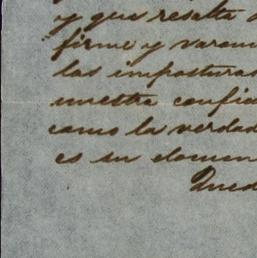 y que resalta
firme y varon
las imposturas
nuestra confia
como la verdad
es su elemen
Qued